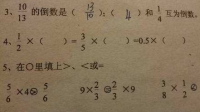 3、10/13 的倒数是（13/10）；（1/4）和 1/4 互为倒数。
4、1/2 ×（　）= 3/5 ×（　）=0.5×（　）
5、在○里填上>、<或=
5/6 ×4 5/6　9× 2/3 ＝ 2/3 ×9　3/8 ○ 3/8 × 1/2